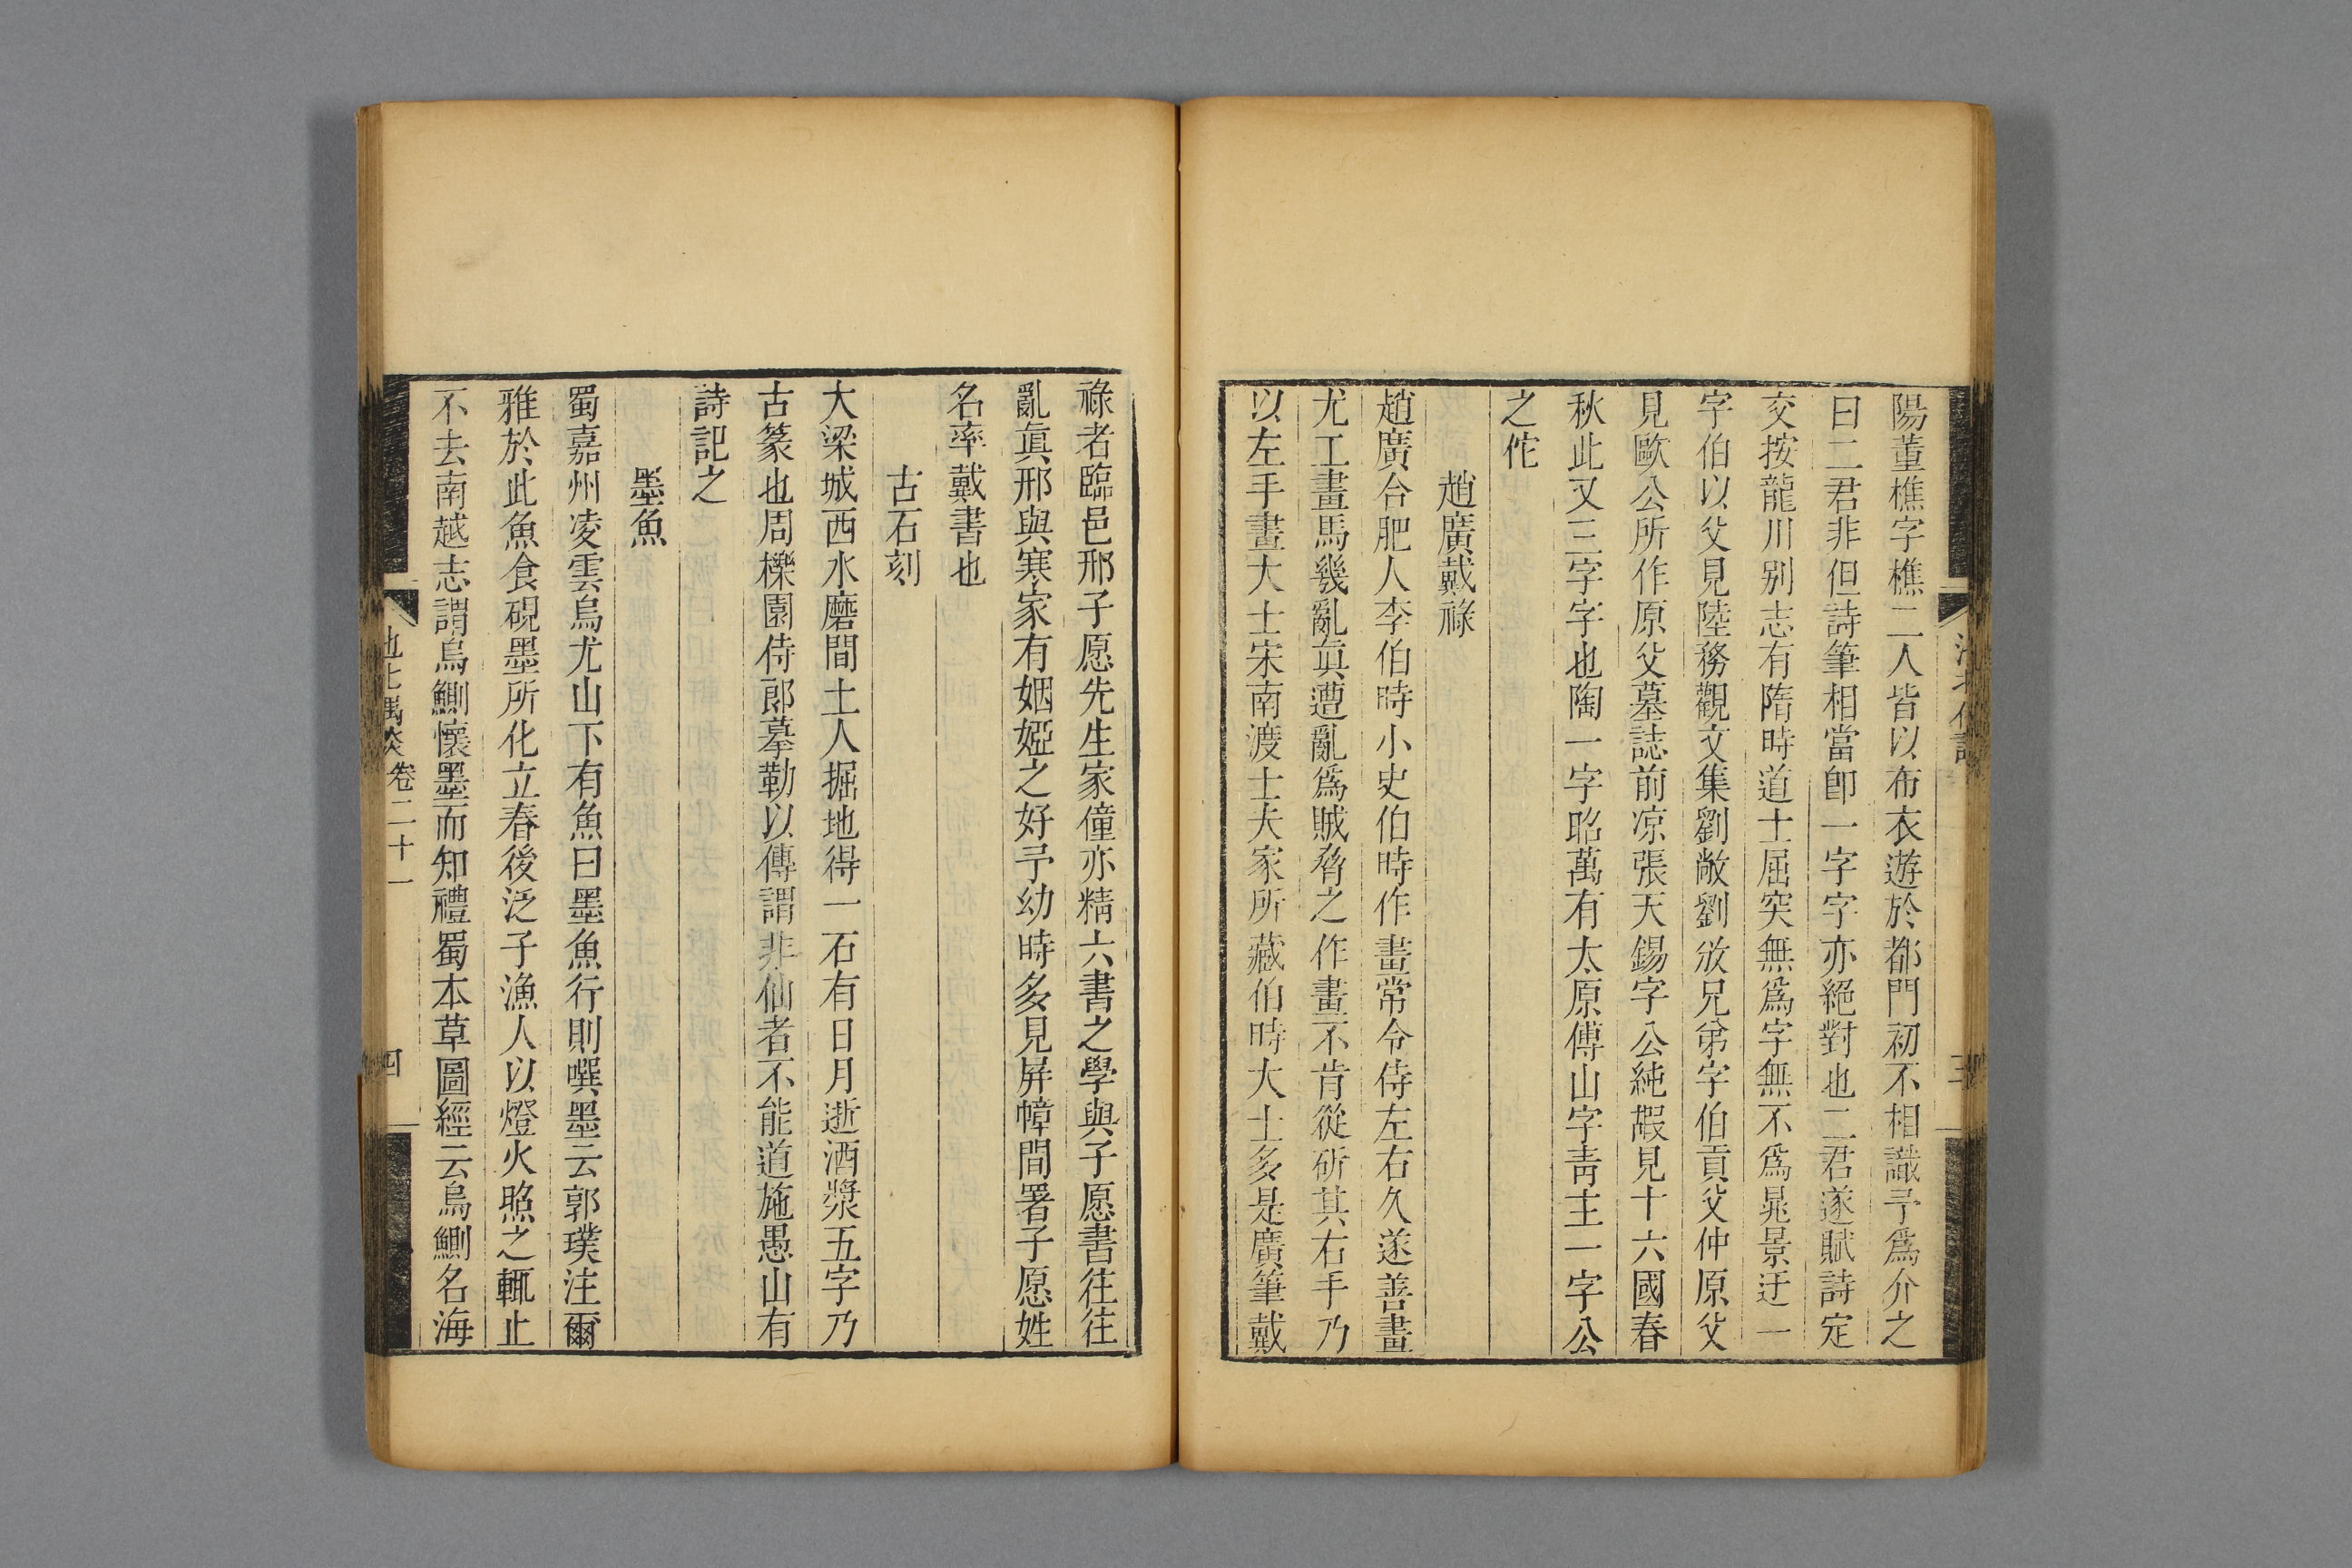 陽董樵字樵二人皆以布衣遊於都門初不相識予爲介之
曰二君非但詩筆相當卽一字字亦絕對也二君遂賦詩定
交按龍川別志有隋時道士屈突無爲字無不爲晁景迂一
字伯以父見陸務觀文集劉敞劉攽兄弟字伯貢父仲原父
見歐公所作原父墓誌前凉張天錫字公純嘏見十六國春
秋此又三字字也陶一字昭萬有太原傅山字靑主一字公
之佗
趙廣戴祿
趙廣合肥人李伯時小史伯時作畫常令侍左右久遂善畫
尤工畫馬幾亂眞遭亂爲賊脅之作畫不肯從斫其右手乃
以左手畫大士宋南渡士夫家所藏伯時大士多是廣筆戴
祿者臨邑邢子愿先生家僮亦精六書之學與子愿書往往
亂眞邢與寒家有姻婭之好予幼時多見屛幛間署子愿姓
名率戴書也
古石刻
大梁城西水磨間土人掘地得一石有日月逝酒漿五字乃
古篆也周櫟園侍郎摹勒以傳謂非仙者不能道施愚山有
詩記之
墨魚
蜀嘉州凌雲烏尤山下有魚曰墨魚行則噀墨云郭璞注爾
雅於此魚食硯墨所化立春後泛子漁人以燈火照之輒止
不去南越志謂烏鰂懷墨而知禮蜀本草圖經云烏鰂名海
池北偶談 卷二十一 四